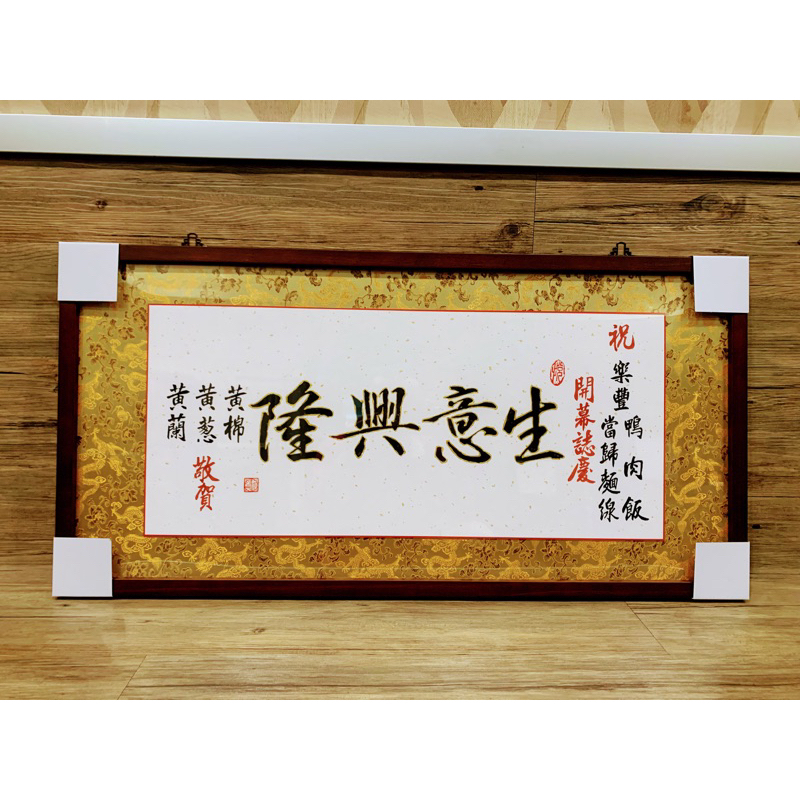 祝
樂豐鴨肉飯
當歸麵線
開幕誌慶
生意興隆
黃棉
黃葱
黃蘭
敬賀